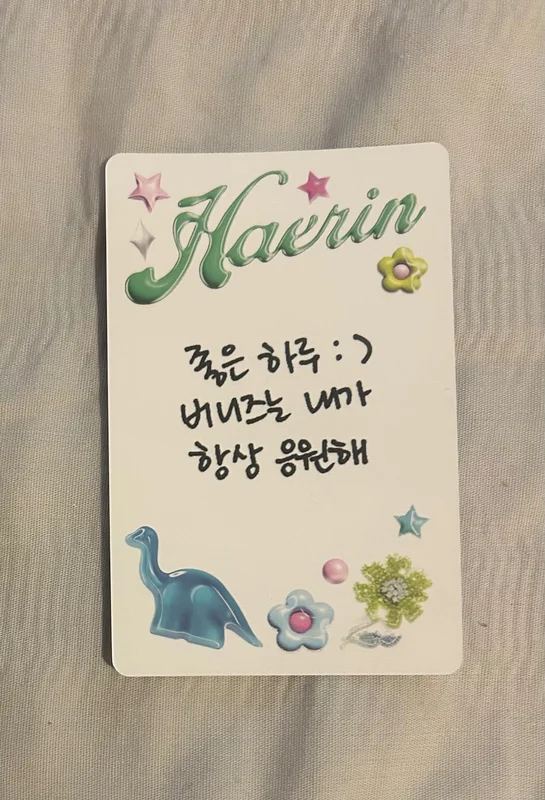 Haerin
좋은 하루 : )
버니즈는 내가
항상 응원해